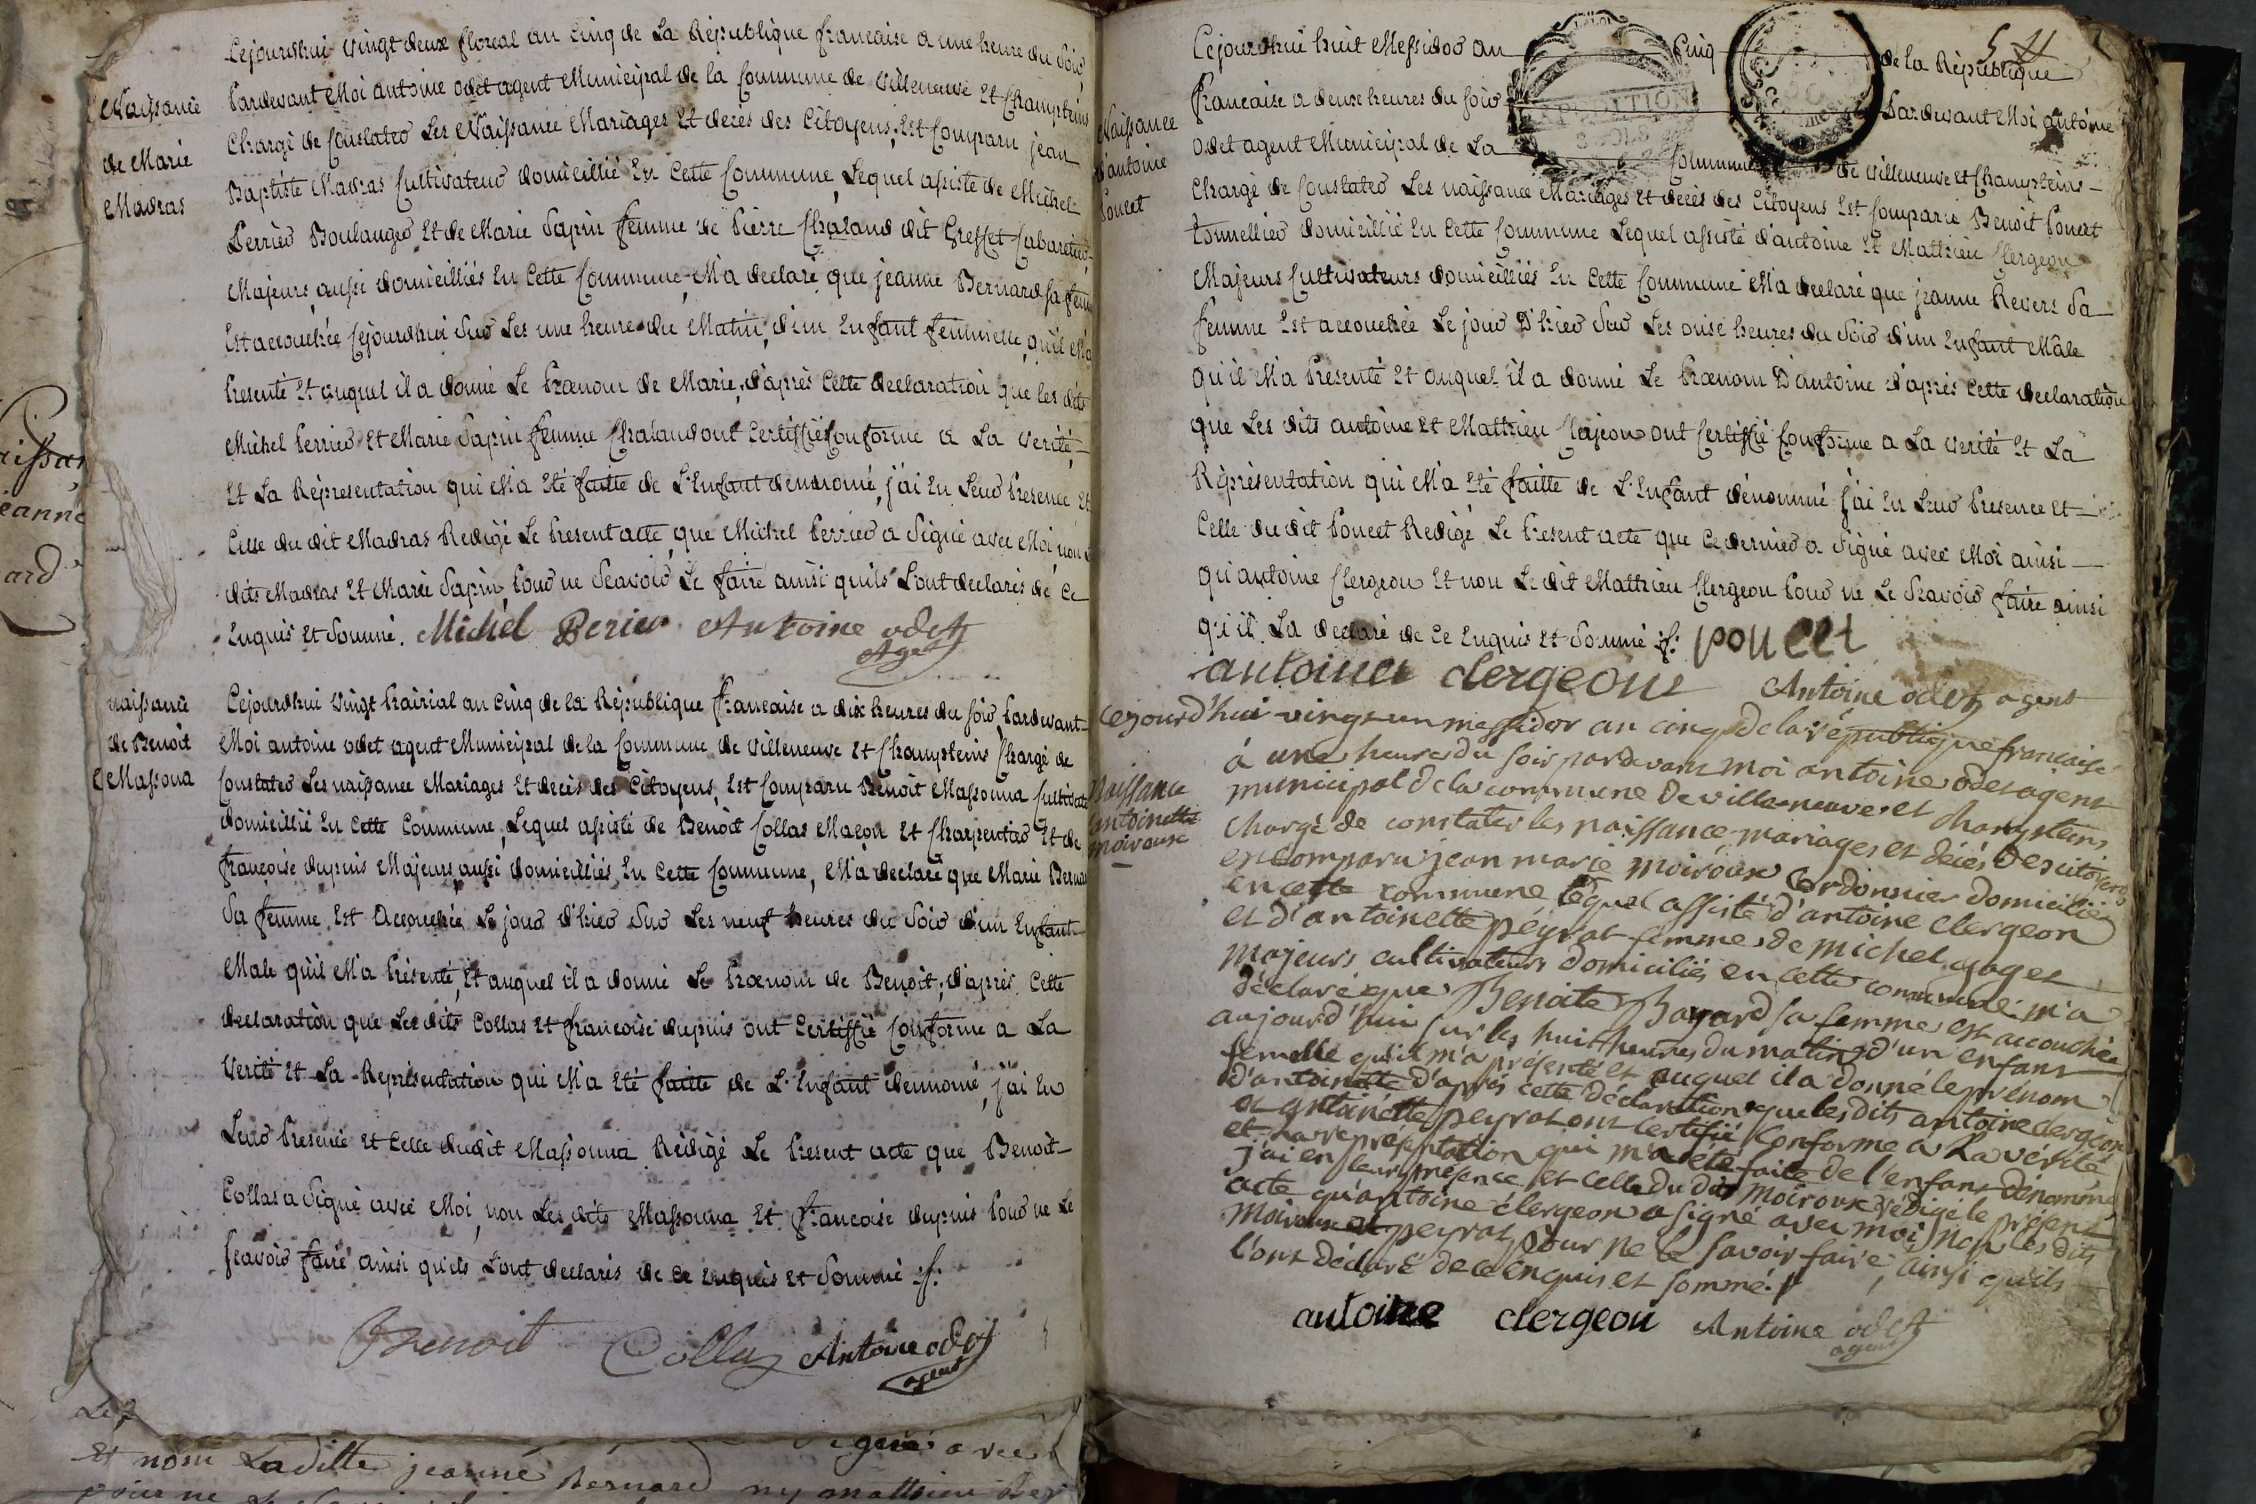 Naissance
de Marie
Madras
Cejourdhui vingt deux floreal an cinq de La Republique francaise a une heure du soir,
Pardevant Moi antoine odet agent Municipal de la Commune de Villeneuve Et Champteins
Chargé de Constater Les Naissance Mariages Et deces des Citoyens, Est Comparu jean
Baptiste Madras Cultivateur domicillié En Cette Commune, Lequel assisté de Michel
Perrier Boulanger Et de Marie Sapin femme de Pierre Chaland dit Gresset Cabaretier,
Majeurs, aussi domicilliés En Cette Commune, M'a declaré que jeanne Bernard sa femme
Est accouchée Cejourdhui Sur Les une heure du Matin, d'un Enfant femmelle, qu'il M'a
Presenté Et auquel il a donné Le Prænom de Marie, d'après Cette declaration que les dits
Michel Perrier Et Marie Sapin femme Chaland ont Certiffié Conforme a La verité,
Et La Représentation qui M'a Eté faitte de L'Enfant denomé, j'ai En Leur Presence Et
Celle du dit Madras Redigé Le Present acte, que Michel Perrier a Signé avec Moi, non
dits Madras Et Marie Sapin Pour ne Scavoir Le faire ainsi qu'ils L'ont declarés de Ce
Enquis Et Sommé. Michel Perier Antoine odet
Agent
naissance
de Benoit
Massona
Cejourdhui vingt Prairial an cinq de la République francaise a dix heures du soir Pardevant
Moi antoine odet agent Municipal de la Commune de Villeneuve Et Champteins Chargé de
Constater Les naissance Mariages Et decès des Citoyens, Est Comparu Benoit Massonna Cultivateur
domicillié En Cette Commune, Lequel assisté de Benoit Collas Maçon Et Charpentier Et de
françoise dupuis Majeurs aussi domicilliés En Cette Commune, M'a declaré que Marie Bernard
Sa femme Est Accouchée Le jour d'hier Sur Les neuf heures du Soir d'un Enfant
Male qu'il M'a Présenté, Et auquel il a donné Le Prænom de Benoit, d'après Cette
declaration que Les dits Collas Et francoise dupuis ont Certiffié Conforme a La
Verité Et La Représentation qui M'a Eté faitte de L'Enfant denommé, j'ai En
Leur Presence Et Celle dudit Massonna Rédigé Le Present acte que Benoit
Collas a Signé avec Moi, non Les dits Massonna Et francoise dupuis Pour ne Le
Scavoir faire ainsi qu'ils L'ont declarés de Ce Enquis Et Sommé :/:
Benoit Collas Antoine odet
agent
Signé avec
Et nom Laditte jeanne Bernard ny matthieu
pour ne
Naissance
d'antoine
Poncet
Cejourdhui huit Messidor an Cinq de la République
francaise a deux heures du soir Pardevant Moi antoine
odet agent Municipal de La Commune de Villeneuve et Champteins
Chargé de Constater Les naissance Mariages Et decès des Citoyens Est Comparu Benoit Poncet
tonnellier domicillié En Cette Commune Lequel assisté d'antoine Et Matthieu Clergeon
Majeurs Cultivateurs domicilliés En Cette Commune M'a declaré que jeanne Revers Sa
femme Est accouchée Le jour D'hier Sur Les onze heures du Soir d'un Enfant Mâle
qu'il M'a Presenté Et auquel il a donné Le Prænom D'antoine d'après Cette declaration
que Les dits antoine Et Matthieu Clerjeon ont Certiffié Conforme a La verité Et La
Répresentation qui M'a Eté faitte de L'Enfant dénommé j'ai En Leur Presence Et
Celle du dit Poncet Redigé Le Present acte que Ce dernier a Signé avec Moi ainsi
qu'antoine Clergeon Et non Le dit Matthieu Clergeon Pour ne Le Scavoir faire ainsi
qu'il La declaré de Ce Enquis Et Sommé :/: poncet
antoine clergeon Antoine odet agent
Naissance
antoinette
moiroux
Cejourd'hui vingt un messidor an cinq de la république francaise
à une heure du soir pardevant moi antoine odet agent
municipal de la commune de villeneuve et champteins
chargé de constater les naissance mariages et décès des citoyens
est comparu jean marie moiroux cordonnier domicilié
en cette commune lequel assisté d'antoine clergeon
et d'antoinette peyrat femme de michel gaget
majeurs cultivateurs domiciliés en cette commune m'a
déclaré que Benoite Bayard sa femme est accouchée
aujourd'hui sur les huit heures du matin d'un enfant
femelle qu'il m'a présenté et auquel il a donné le prénom
d'antoinette d'après cette déclaration que les dits antoine clergeon
et antoinette peyrat ont certifié conforme à la vérité
et la représentation qui m'a été faite de l'enfant dénommé
j'ai en leur présence et celle du dit moiroux rédigé le présent
acte qu'antoine clergeon a signé avec moi non les dits
moiroux et peyrat pour ne le savoir faire, ainsi qu'ils
l'ont déclaré de ce enquis et sommé./.
antoine clergeon Antoine odet
agent